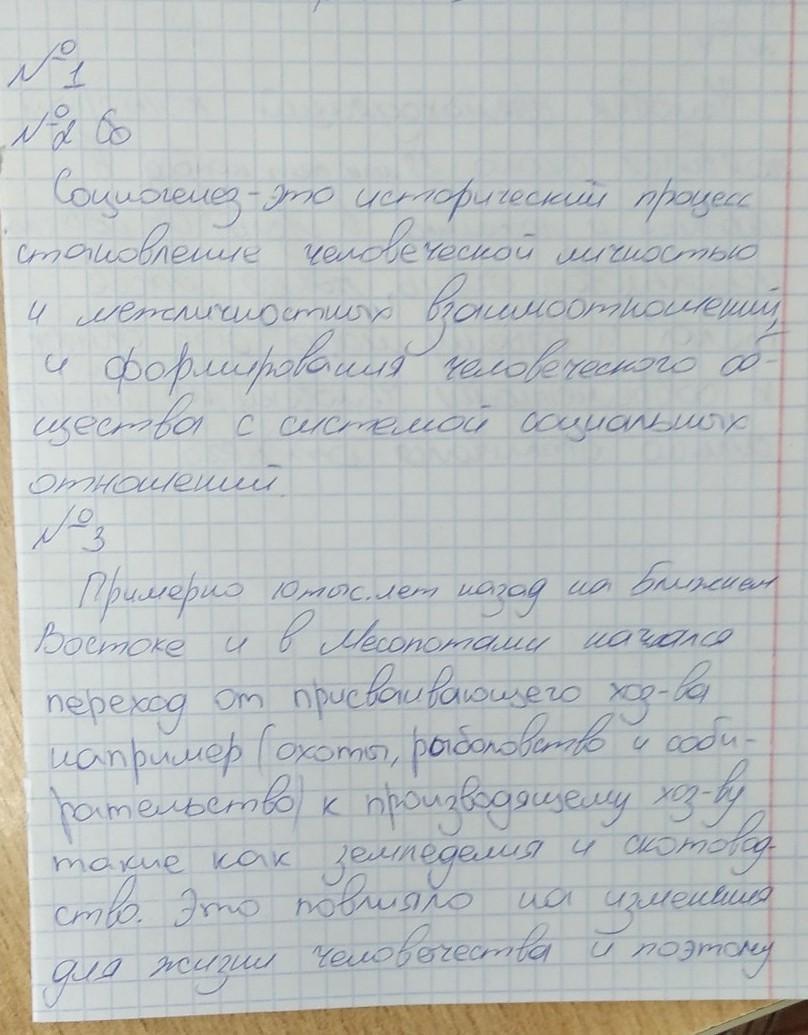 №1
№2 Со
Социогенез - это исторический процесс
становление человеческой личностью
и межличностных взаимоотношений,
и формирования человеческого об-
щества с системой социальных
отношений.
№3
Примерно 10 тыс. лет назад на Ближнем
Востоке и в Месопотами начался
переход от присваивающего хоз-ва
например (охоты, рыболовство и соби-
рательство) к производящему хоз-ву
такие как земледелия и скотовод-
ство. Это повлияло на изменения
для жизни человечества и поэтому